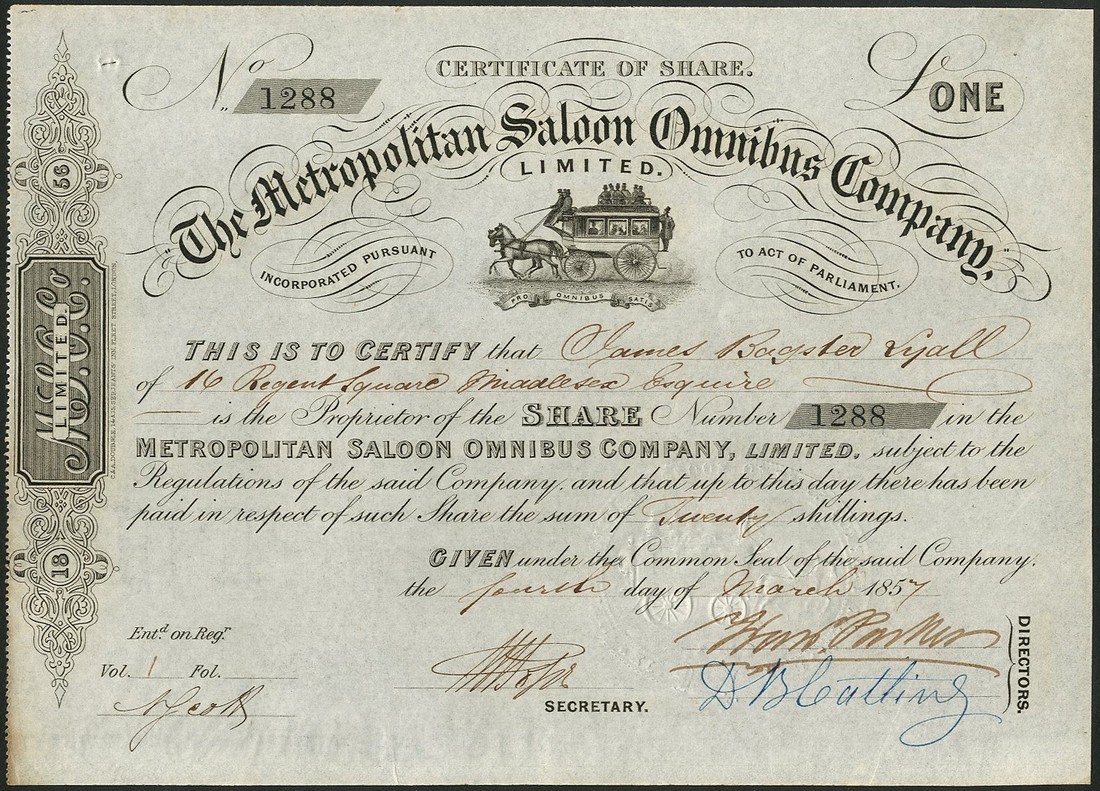 CERTIFICATE OF SHARE.
No. 1288
£ONE
"The Metropolitan Saloon Omnibus Company,"
LIMITED.
INCORPORATED PURSUANT TO ACT OF PARLIAMENT.
PRO OMNIBUS SATIS
THIS IS TO CERTIFY that James Bagster Lyall
of 16 Regent Square Middlesex Esquire
is the Proprietor of the SHARE Number 1288 in the
METROPOLITAN SALOON OMNIBUS COMPANY, LIMITED, subject to the
Regulations of the said Company, and that up to this day there has been
paid in respect of such Share the sum of Twenty shillings.
GIVEN under the Common Seal of the said Company,
the fourth day of March 1857
Entd on Regr
Vol. 1 Fol.
SECRETARY.
D B Catling
DIRECTORS.
56
M.S.O.Co.
LIMITED.
18